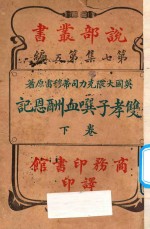 說部叢書
第七集第五編
英國大隈克力司蒂穆雷原著
雙孝子噀血酬恩記
卷下
商務印書館
譯印